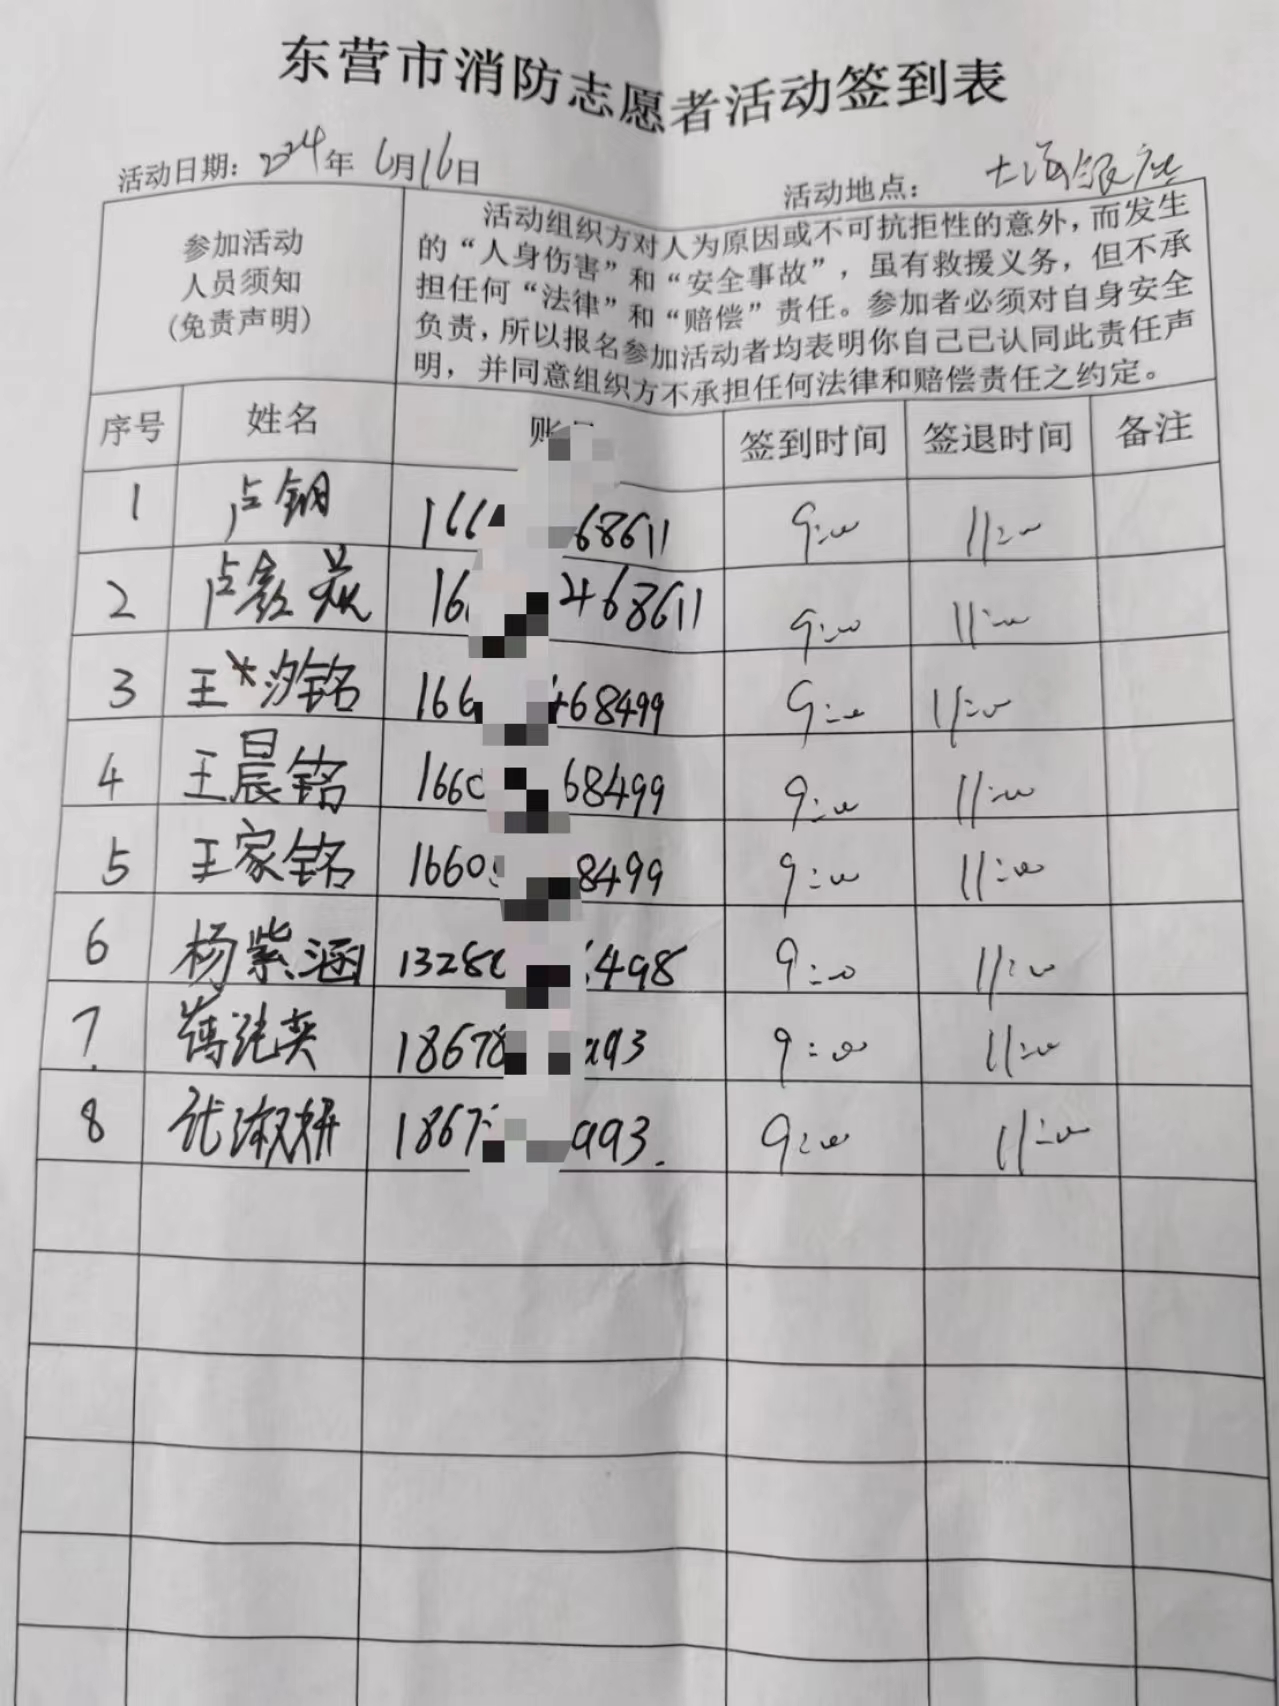 东营市消防志愿者活动签到表
活动日期：2024年6月16日 活动地点：上海银座
参加活动
人员须知
（免责声明）
活动组织方对人为原因或不可抗拒性的意外，而发生
的“人身伤害”和“安全事故”，虽有救援义务，但不承
担任何“法律”和“赔偿”责任。参加者必须对自身安全
负责，所以报名参加活动者均表明你自己已认同此责任声
明，并同意组织方不承担任何法律和赔偿责任之约定。
序号 姓名 账 签到时间 签退时间 备注
1 卢钢 166 68611 9:00 11:00
2 卢鑫 16 468611 9:00 11:00
3 王汐铭 166 468499 9:00 11:00
4 王晨铭 1660 68499 9:00 11:00
5 王家铭 1660 8499 9:00 11:00
6 杨紫涵 1328 498 9:00 11:00
7 18678 993 9:00 11:00
8 张淑妍 1867 993. 9:00 11:00